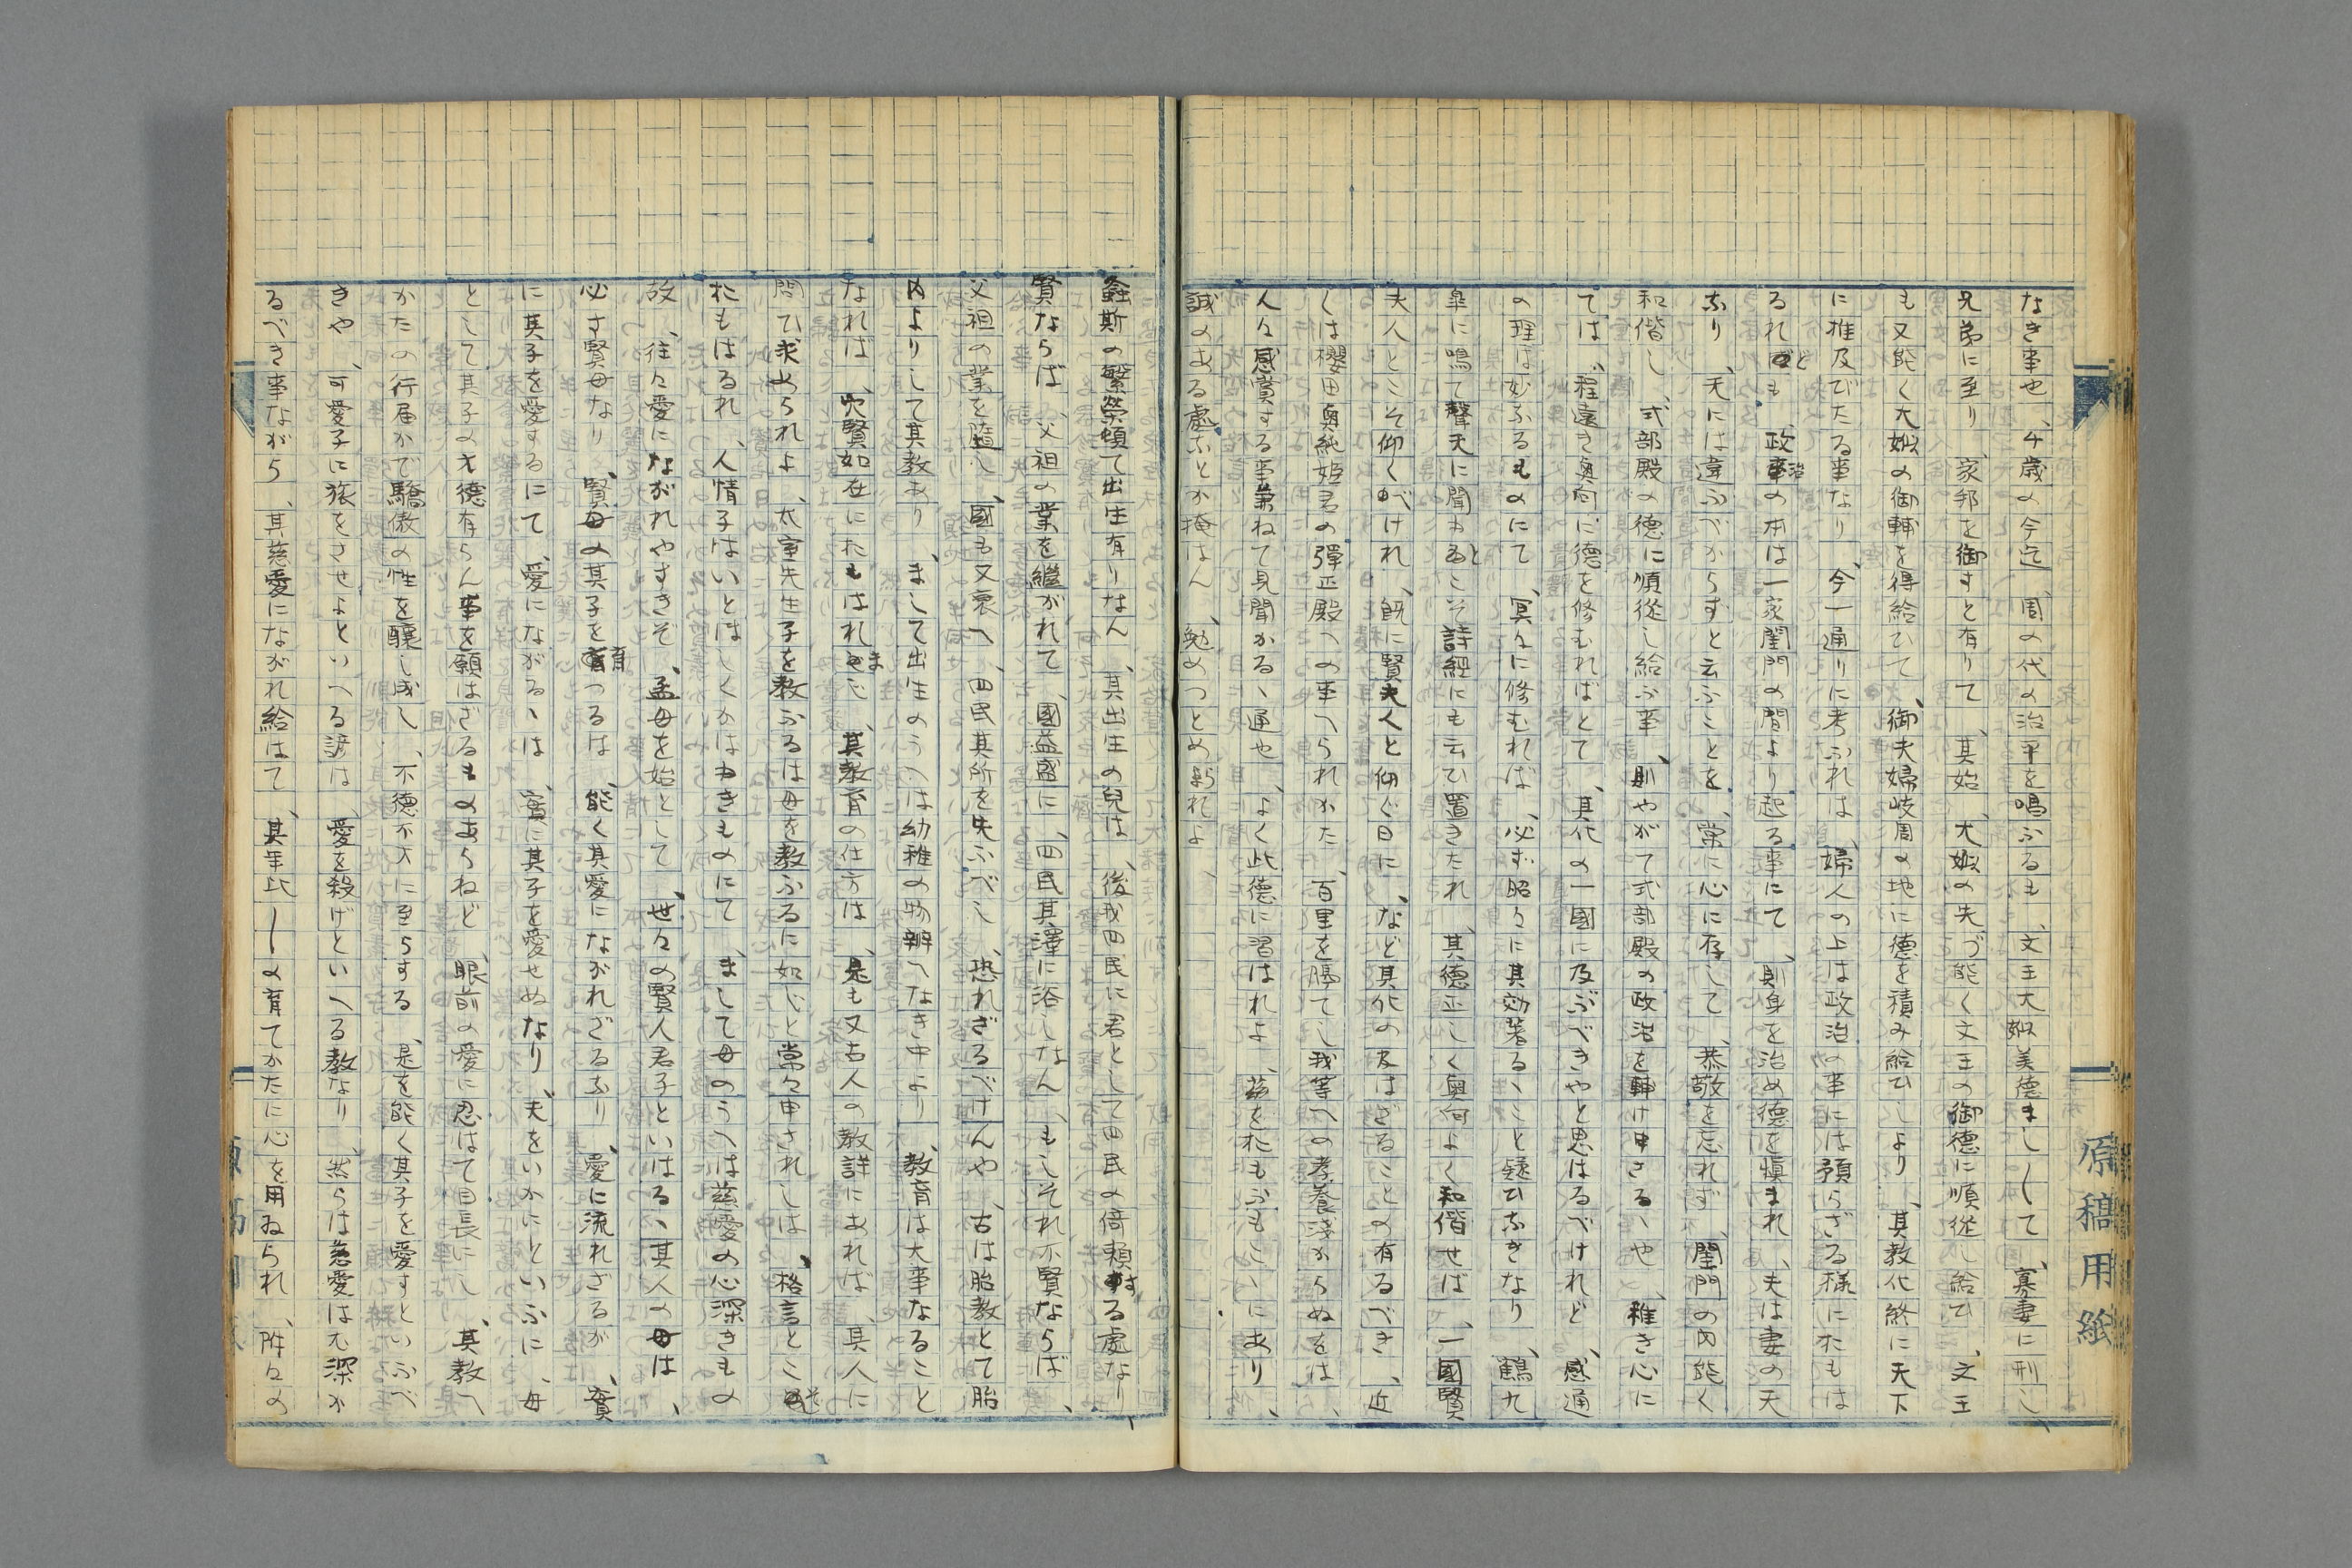 なき事也、千歳の今迄、周の代の治平を鳴ふるも、文王大姒美徳まし〳〵て、寡妻に刑し
兄弟に至り、家邦を御すと有りて、其始、大姒の先づ能く文王の御徳に順従し給ひ、文王
も又能く大姒の御輔を得給ひて、御夫婦岐周の地に徳を積み給ひしより、其教化終に天下
に推及びたる事なり、今一通りに考ふれは、婦人の上は政治の事には預らざる様にたもは
るれとも、政治の本は一家閨門の間より起る事にて、則身を治め徳を慎まれ、夫は妻の天
なり、天には違ふべからすと云ふことを、常に心に存して、恭敬を忘れず、閨門の内能く
和偕し、式部殿の徳に順従し給ふ事、則やがて式部殿の政治を輔け申さるゝや、稚き心に
ては、程遠き奥向に徳を修むればとて、其化の一國に及ぶべきやと思はるべけれど、感通
の理は妙ふるものにて、冥々に修むれば、必ず昭々に其効著るゝこと疑ひなきなり、鶴九
皐に鳴て聲天に聞ゆとこそ詩經にも云ひ置きたれ、其徳正しく奥向よく和偕せば、一國賢
夫人とこそ仰くべけれ、既に賢夫人と仰ぐ日に、など其化の及はざることの有るべき、近
くは櫻田奥純姫君の彈正殿への事へられかた、百里を隔てし我等への孝養淺からぬをは、
人々感賞する事兼ねて見聞かるゝ通也、よく此徳に習はれよ、茲をたもふもこゝにあり、
誠のある處なとか掩はん、勉めつとめ齢れよ、
螽斯の繁榮頓て出生有りなん、其出生の兒は、後我四民に君として四民の倚頼する處なり、
賢ならば、父祖の業を繼がれて、國益盛に、四民其澤に浴しなん、もしそれ不賢ならば、
父祖の業を隨し、國も又衰へ、四民其所を失ふべし、恐れざるべけんや、古は胎教とて胎
内よりして其教あり、まして出生のうへは幼稚の物辨へなき中より、教育は大事なること
なれば、穴賢如在にたもはれまじ、其教育の仕方は、是も又古人の教詳にあれば、其人に
問ひ求められよ、大室先生子を教ふるは母を教ふるに如じと常々申されしは、格言とこそ
たもはるれ、人情子はいとはしくかはゆきものにて、まして母のうへは慈愛の心深きもの
故、往々愛にながれやすきぞ、孟母を始として、世々の賢人君子といはるゝ其人の母は、
必す賢母なり、賢母の其子を育つるは、能く其愛にながれざるなり、愛に流れざるが、實
に其子を愛するにて、愛にながるゝは、實に其子を愛せぬなり、夫をいかにといふに、母
として其子の才徳有らん事を願はざるものあらねど、眼前の愛に忍はて日長にし、其教へ
かたの行届かで驕傲の性を釀し成し、不徳不才に至らする、是を能く其子を愛すといふべ
きや、可愛子に旅をさせよといへる諺は、愛を殺げといへる教なり、然らは慈愛は尤深か
るべき事ながら、其慈愛にながれ給はて、其年比〳〵の育てかたに心を用ゐられ、附々の
原稿用紙